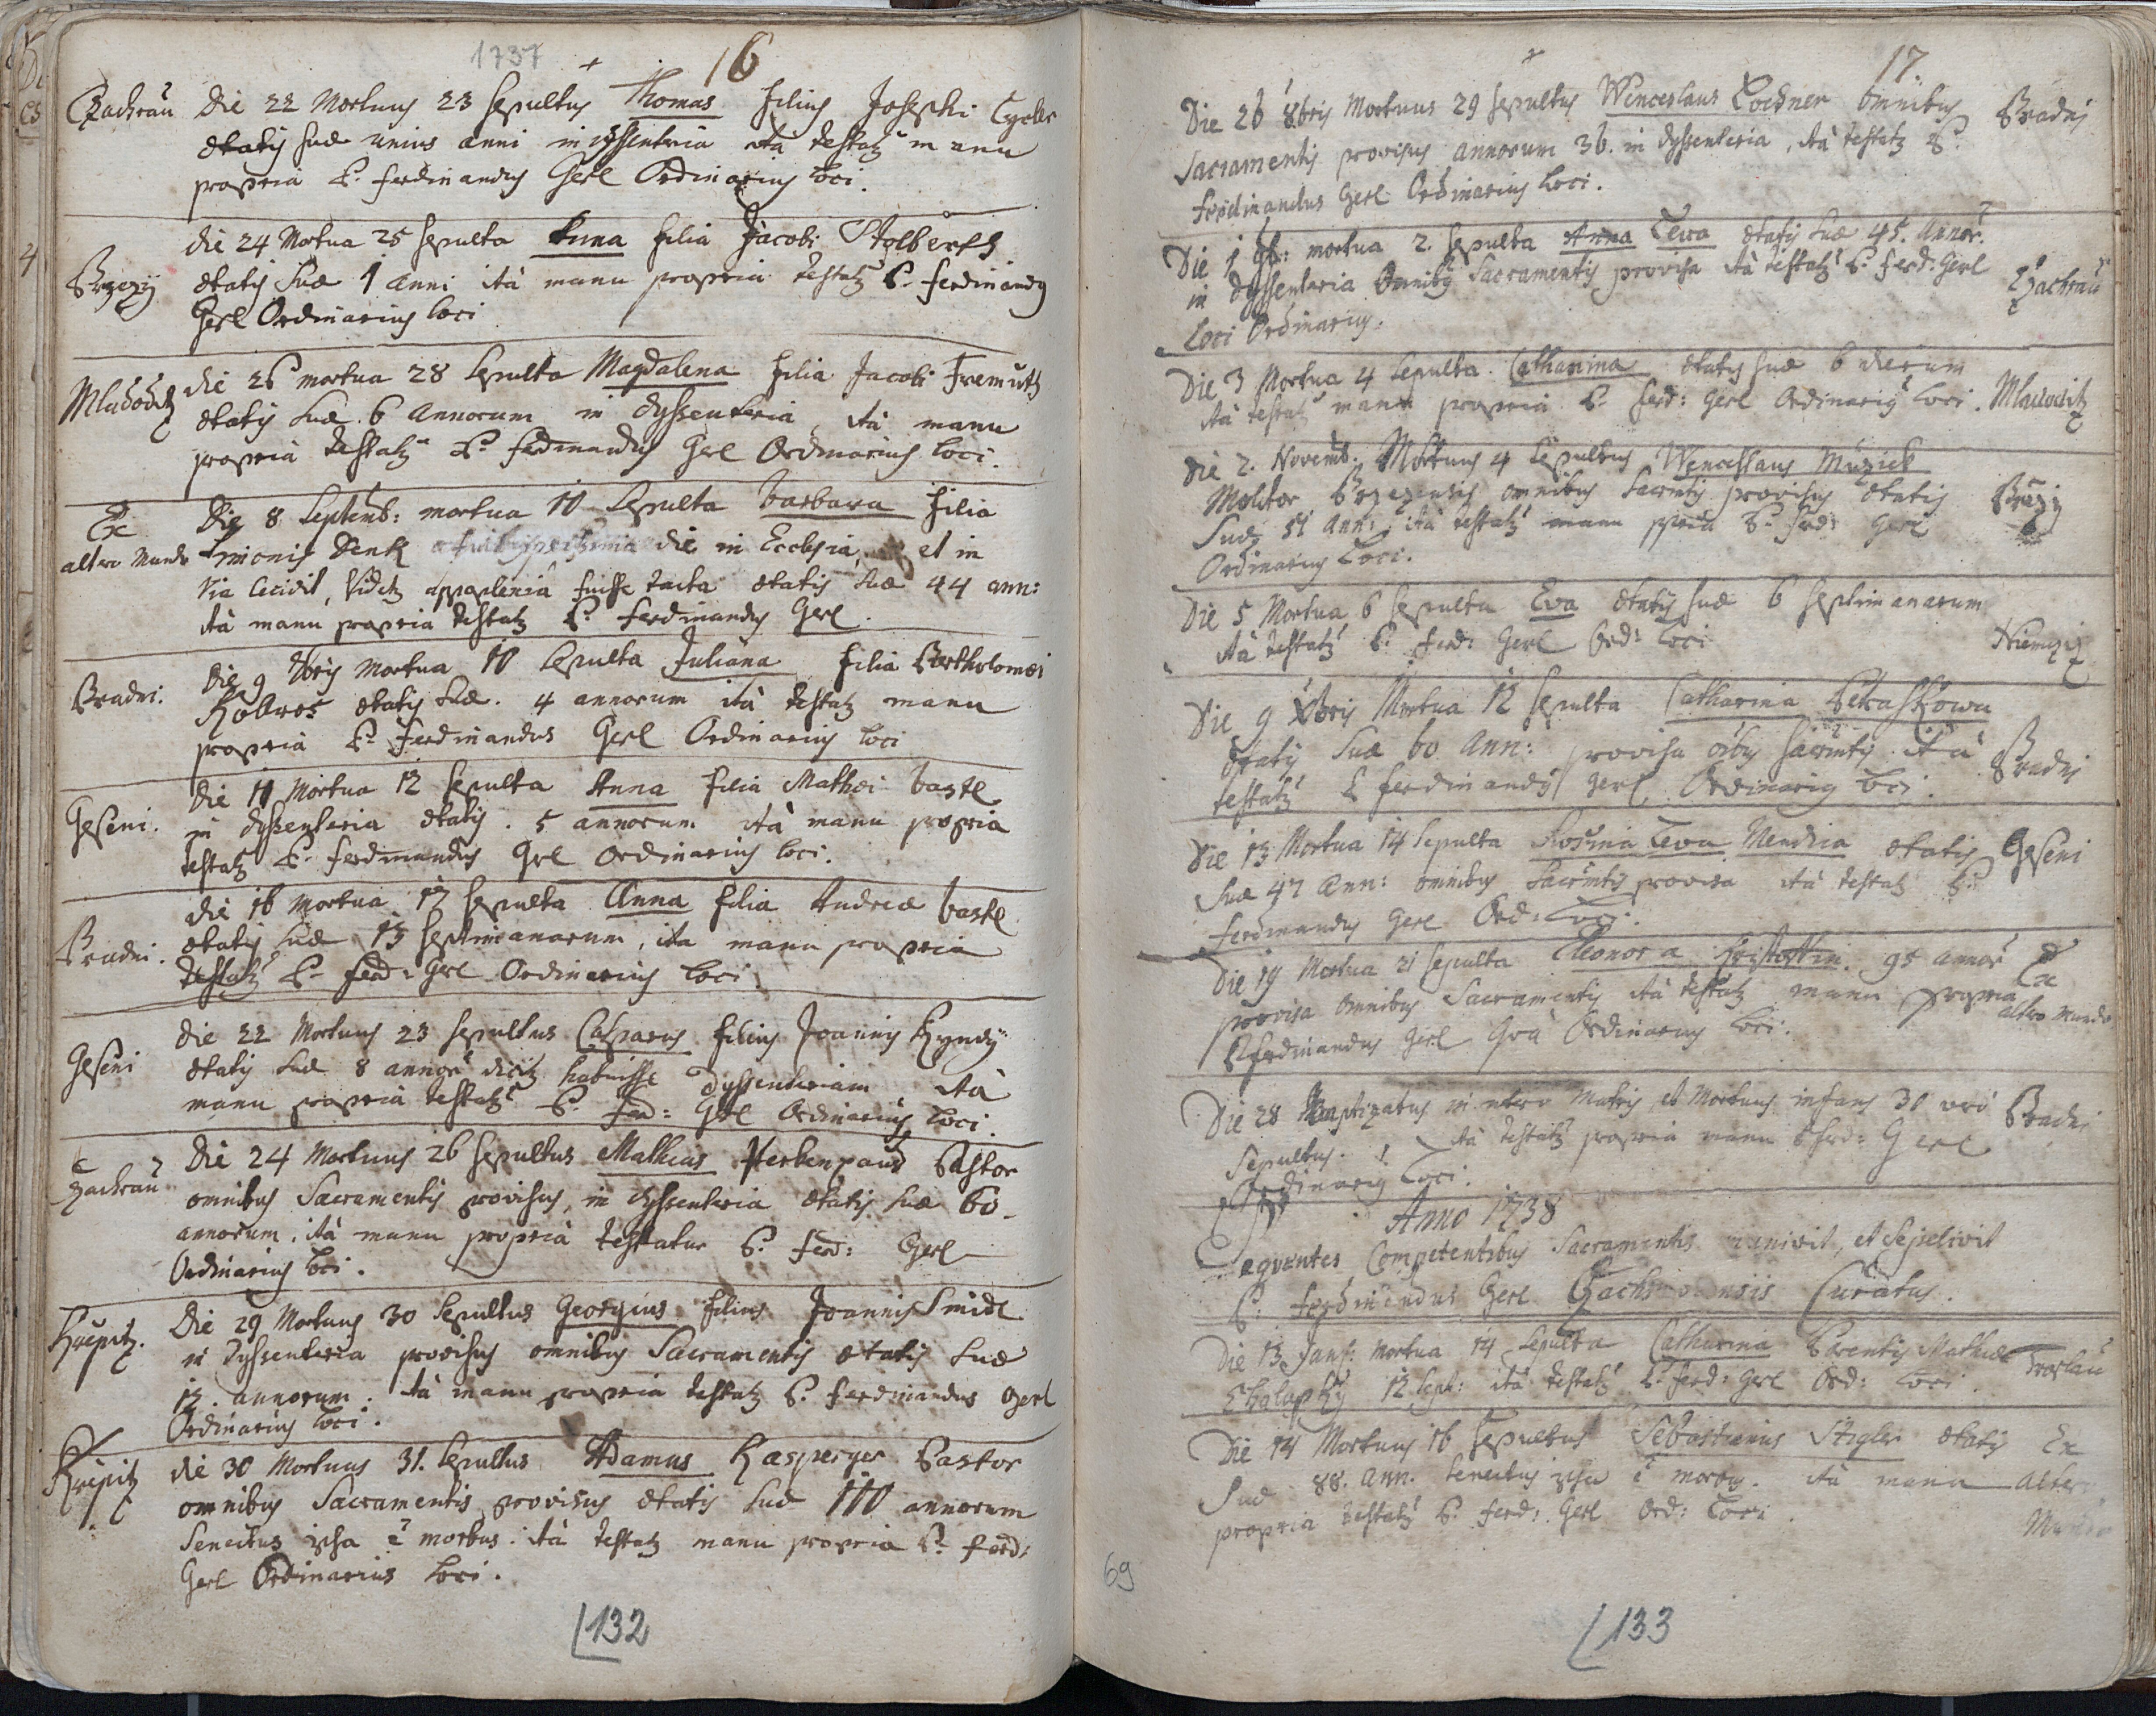 1737 + 16
Czachrau Die 22 Mortuus 23 sepultus Thomas filius Josephi
ætatis suæ unius anni in dyssenteria ità testatz manu
propria P. Ferdinandus Gerl Ordinarius loci.
Die 24 Mortua 25 sepulta Anna filia Jacobi
Brzezy ætatis suæ 1 anni ità manu propria testatz P. Ferdinandus
Gerl Ordinarius loci
Die 26 mortua 28 sepulta Magdalena filia Jacobi Fremuth
ætatis suæ 6 annorum in dyssenteria, ità manu
propria testatz P. Ferdinandus Gerl Ordinarius loci.
Ex Die 8 Septemb: mortua 10 sepulta Barbara filia
altero Mundo Denk die in Ecclesia et in
via cecidit, videtz fuisse tacta ætatis suæ 44 ann:
ità manu propria testatz P. Ferdinandus Gerl.
Bradni. Die 9 7bris mortua 10 sepulta Juliana filia Bartholomæi
ætatis suæ. 4 annorum ità testatz manu
propria P. Ferdinandus Gerl Ordinarius loci
Die 11 Mortua 12 sepulta Anna filia Mathæi Bastl
Geseni. in dyssenteria ætatis. 5 annorum ità manu propria
testatz P. Ferdinandus Gerl Ordinarius loci.
Die 16 mortua 17 sepulta Anna filia Andreæ Bastl
Bradni. ætatis suæ 13 septimanarum, ita manu propria
testatz P. Ferd: Gerl Ordinarius loci
Die 22 Mortuus 23 sepultus Casparus filius Joannis
Geseni ætatis suæ 8 annor̃ habuisse dyssenteriam ità
manu propria testatz P. Ferd: Gerl Ordinarius loci.
Czachrau Die 24 Mortuus 26 sepultus Mathias Pastor
omnibus Sacramentis provisus, in dyssenteria ætatis suæ 60
annorum, ità manu propria testatur P. Ferd: Gerl
Ordinarius loci.
Die 29 Mortuus 30 sepultus Georgius filius Joannis Smidl
in dyssenteria provisus omnibus Sacramentis ætatis suæ
12. annorum. ità manu propria testatz P. Ferdinandus Gerl
Ordinarius loci.
Die 30 Mortuus 31. sepultus Adamus Kasperger Pastor
omnibus Sacramentis provisus ætatis suæ 110 annorum
Senectus ipsa ẽ morbus. ità testatz manu propria P. Ferd:
Gerl Ordinarius loci.
132
+ 17
Die 26 8bris Mortuus 29 sepultus Wenceslaus Lochner omnibus Bradni
Sacramentis provisus annorum 36. in dyssenteria, ità testatz P.
Ferdinandus Gerl Ordinarius loci.
Die 1 9b: mortua 2. sepulta Anna ætatis suæ 45. Annor̃.
in dyssenteria omnibus Sacramentis provisa ità testatz P. Ferd: Gerl Czachrau
loci Ordinarius.
Die 3 Mortua 4 sepulta. Catharina ætatis suæ 6 dierum
ità testatz manu propria P. Ferd: Gerl Ordinarius loci.
Die 2. Novemb. Mortuus 4 sepultus Wenceslaus Muzick
Molitor omnibus Sacrm̃tis provisus ætatis
Suæ 51 Ann: ità testatz manu P. Ferd: Gerl
Ordinarius Loci.
Die 5 Mortua 6 sepulta Eva ætatis suæ 6 septimanarum
ità testatz P. Ferd: Gerl Ord: loci
Die 9 Xbris Mortua 12 sepulta Catharina
ætatis suæ 60 Ann: provisa Sacrm̃tis ità Bradni
testatz P Ferdinandus Gerl Ordinarius loci.
Die 13 Mortua 14 sepulta Rosina Mendica ætatis Geseni
suæ 47 Ann: omnibus Sacrm̃tis provisa ità testatz P.
Ferdinandus Gerl Ord: Loci.
Die 19 Mortua 21 sepulta Eleonora 95 annor̃ Ex
provisa omnibus Sacramentis ità testatz manu propria altero Mundo
P Ferdinandus Gerl Ordinarius loci.
Die 28 Baptizatus in utero Matris et Mortuus infans 30 Bradni
Sepultus. ità testatz propria manu P Ferd: Gerl
Ordinarius Loci.
Anno 1738
Seqventes Competentibus Sacramentis munivit, et Sepelivit
P. Ferdinandus Gerl Curatus.
Die 13 Mortua 14 sepulta Catharina Parentis Mathiæ
12 sept: ità testatz P. Ferd: Gerl Ord: loci.
Die 14 Mortuus 16 sepultus Sebastianus Stigler ætatis Ex
Suæ 88. Ann. Senectus ipsa ẽ morbus. ità manu Altero
propria testatz P. Ferd: Gerl Ord: Loci. Mundo
69
133